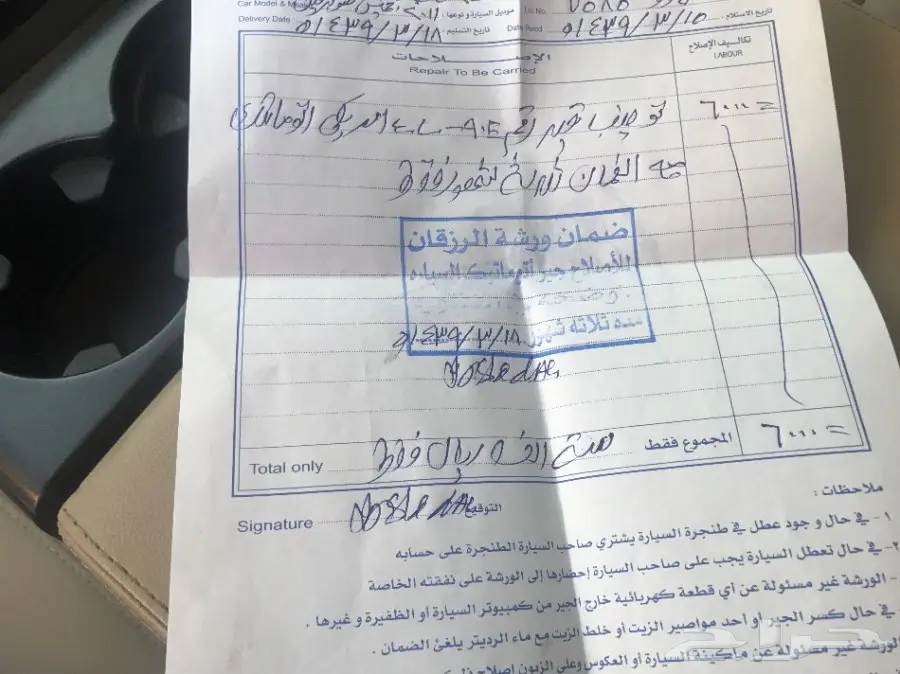 Car Model & M موديل السيارة و نوعها : Lic No. ٧٥٨٥
Delivery Date ١٤٣٩/٣/١٨ه تاريخ التسليم : Date Recd ١٤٣٩/٣/١٥ه تاريخ الاستلام :
الإصــلاحات
Repair To Be Carried
تكاليف الإصلاح
LABOUR
توضيب قير رقم ٦٠٠٠=
مع الضمان ثلاثة شهور فقط
ضمان ورشة الرزقان
للأصلاح جير أتوماتيك السياره
مده ثلاثه شهور ١٤٣٩/٣/١٨ه
Total only ستة الف ريال فقط المجموع فقط ٦٠٠٠=
Signature التوقيع
ملاحظات :
١ - في حال و جود عطل في طنجرة السيارة يشتري صاحب السيارة الطنجرة على حسابه
٢- في حال تعطل السيارة يجب على صاحب السيارة إحضارها إلى الورشة على نفقته الخاصة
- الورشة غير مسئولة عن أي قطعة كهربائية خارج الجير من كمبيوتر السيارة أو الظفيرة و غيرها .
في حال كسر الجير أو أحد مواصير الزيت أو خلط الزيت مع ماء الرديتر يلغئ الضمان .
الورشة غير مسئولة عن ماكينة السيارة أو العكوس وعلى الزبون إصلاح
حراج